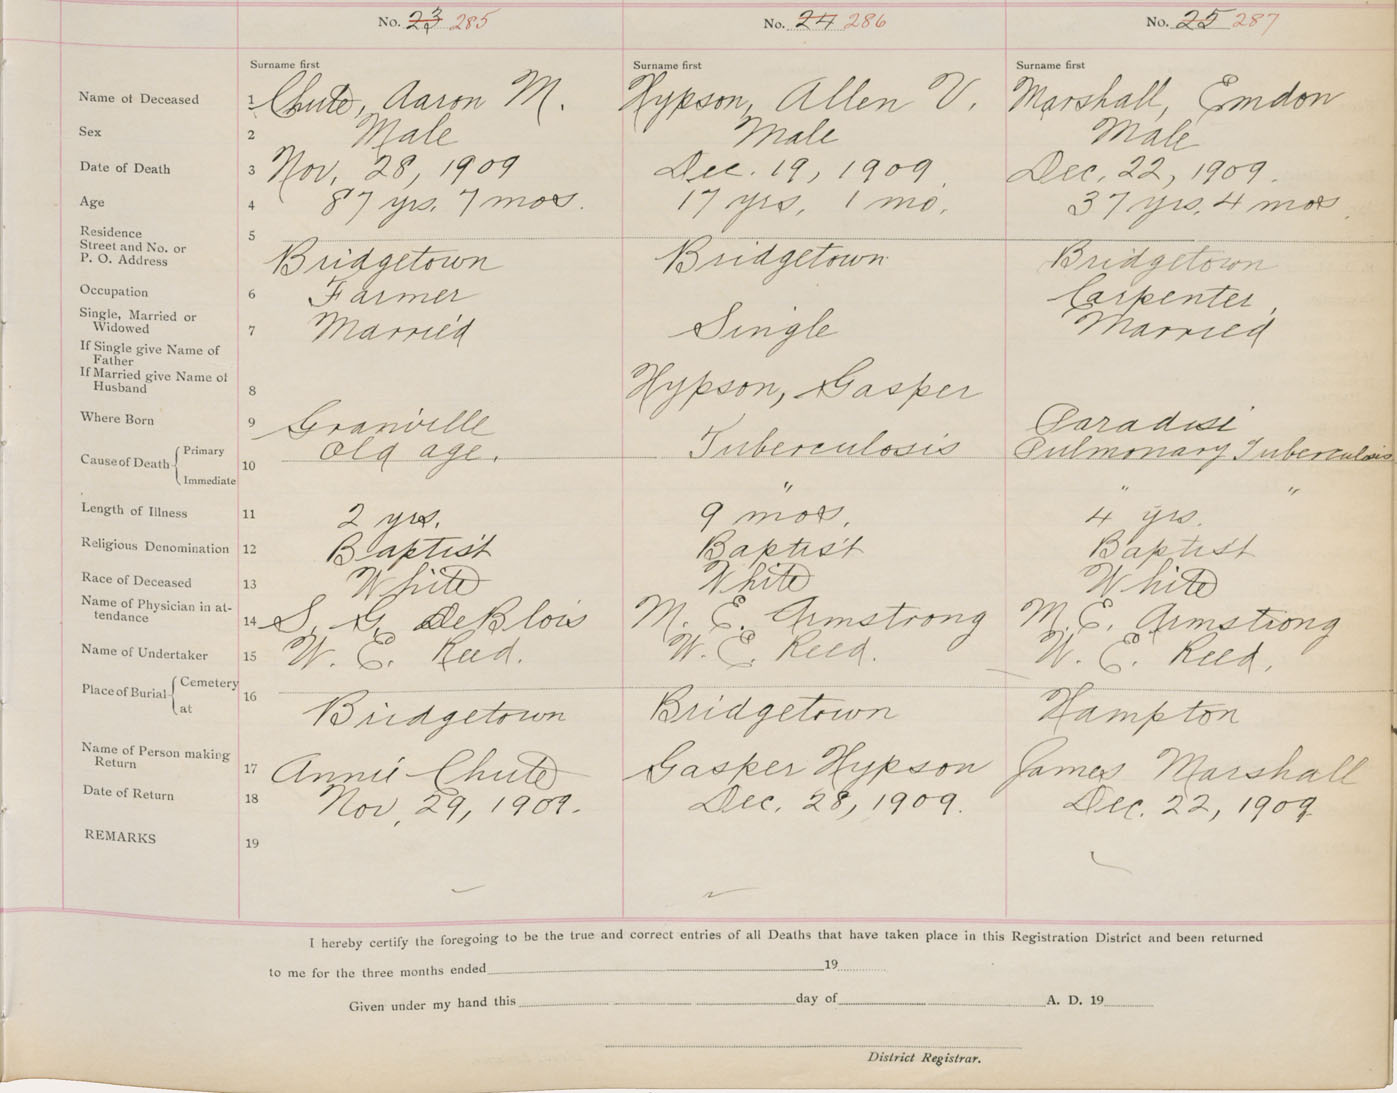 No. 23 285 No. 24 286 No. 25 287
Surname first Surname first Surname first
Name of Deceased 1 Chute, Aaron M. Hypson, Allen V. Marshall, Emdon
Sex 2 Male Male Male
Date of Death 3 Nov, 28, 1909 Dec. 19, 1909. Dec, 22, 1909.
Age 4 87 yrs. 7 mos. 17 yrs, 1 mo. 37 yrs, 4 mos.
Residence
Street and No. or 5
P. O. Address Bridgetown Bridgetown Bridgetown
Occupation 6 Farmer Carpenter,
Single, Married or
Widowed 7 Married Single Married
If Single give Name of
Father
If Married give Name of
Husband 8 Hypson, Gasper
Where Born 9 Granville Paradise
Cause of Death Primary Old age. Tuberculosis Pulmonary Tuberculosis
10
Immediate " " "
Length of Illness 11 2 yrs. 9 mos. 4 yrs.
Religious Denomination 12 Baptist Baptist Baptist
Race of Deceased 13 White White White
Name of Physician in at-
tendance 14 S. G. DeBlois M. E. Armstrong M. E. Armstrong
Name of Undertaker 15 W. E. Reed. W. E. Reed. W. E. Reed.
Place of Burial Cemetery 16
at Bridgetown Bridgetown Hampton
Name of Person making
Return 17 Annie Chute Gasper Hypson James Marshall
Date of Return 18 Nov, 29, 1909. Dec. 28, 1909. Dec. 22, 1909
REMARKS 19
I hereby certify the foregoing to be the true and correct entries of all Deaths that have taken place in this Registration District and been returned
to me for the three months ended 19
Given under my hand this day of A. D. 19
District Registrar.